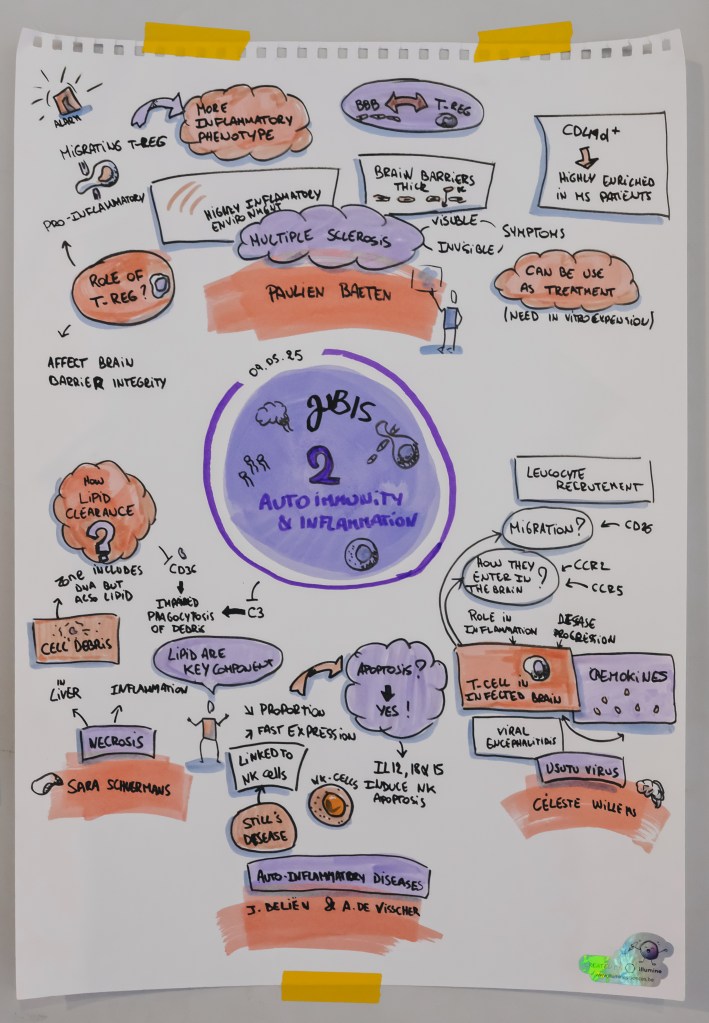 ALARM
MIGRATING T-REG
PRO-INFLAMMATORY
MORE
INFLAMMATORY
PHENOTYPE
BBB
T-REG
HIGHLY INFLAMATORY
ENVIRONMENT
BRAIN BARRIERS
THICK
HIGHLY ENRICHED
IN MS PATIENTS
MULTIPLE SCLEROSIS
VISIBLE
INVISIBLE
SYMPTOMS
ROLE OF
T-REG?
PAULIEN BAETEN
CAN BE USE
AS TREATMENT
(NEED IN VITRO EXPENSION)
AFFECT BRAIN
BARRIER INTEGRITY
09.05.25
JIBIS
2
AUTOIMMUNITY
& INFLAMMATION
HOW
LIPID
CLEARANCE
?
ZONE INCLUDES
DNA BUT
ALSO LIPID
CELL DEBRIS
IN
LIVER
INFLAMMATION
NECROSIS
CD36
IMPAIRED
PHAGOCYTOSIS
OF DEBRIS
C3
LIPID ARE
KEY COMPONENT
PROPORTION
FAST EXPRESSION
LINKED TO
NK CELLS
STILL'S
DISEASE
NK-CELLS
APOPTOSIS?
YES!
INDUCE NK
APOPTOSIS
AUTO-INFLAMMATORY DISEASES
J. BELIËN & A. DE VISSCHER
LEUCOCYTE
RECRUTEMENT
MIGRATION?
HOW THEY
ENTER IN
THE BRAIN?
CCR2
CCR5
ROLE IN
INFLAMMATION
DISEASE
PROGRESSION
T-CELL IN
INFECTED BRAIN
CHEMOKINES
VIRAL
ENCEPHALITIDIS
USUTU VIRUS
illumine